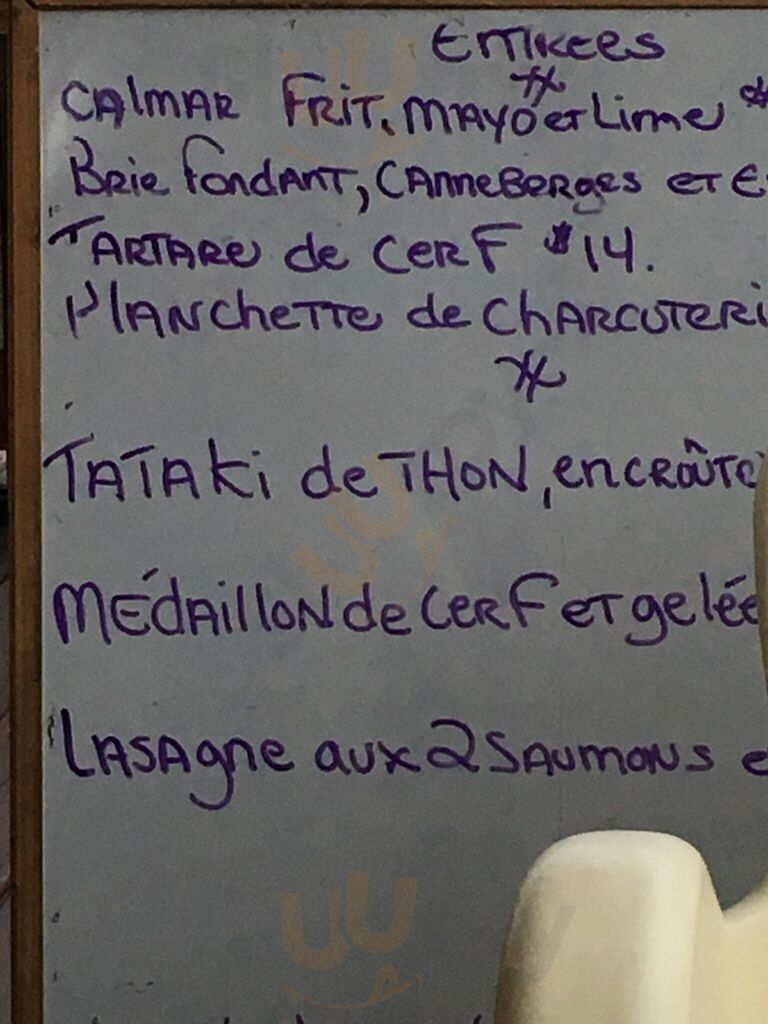 Entrees
Calmar Frit, mayo et Lime $
Brie fondant, canneberges et
Tartare de cerf $14.
Planchette de charcuteri
Tataki de thon, en croûte
Médaillon de cerf et gelée
Lasagne aux 2 saumons e